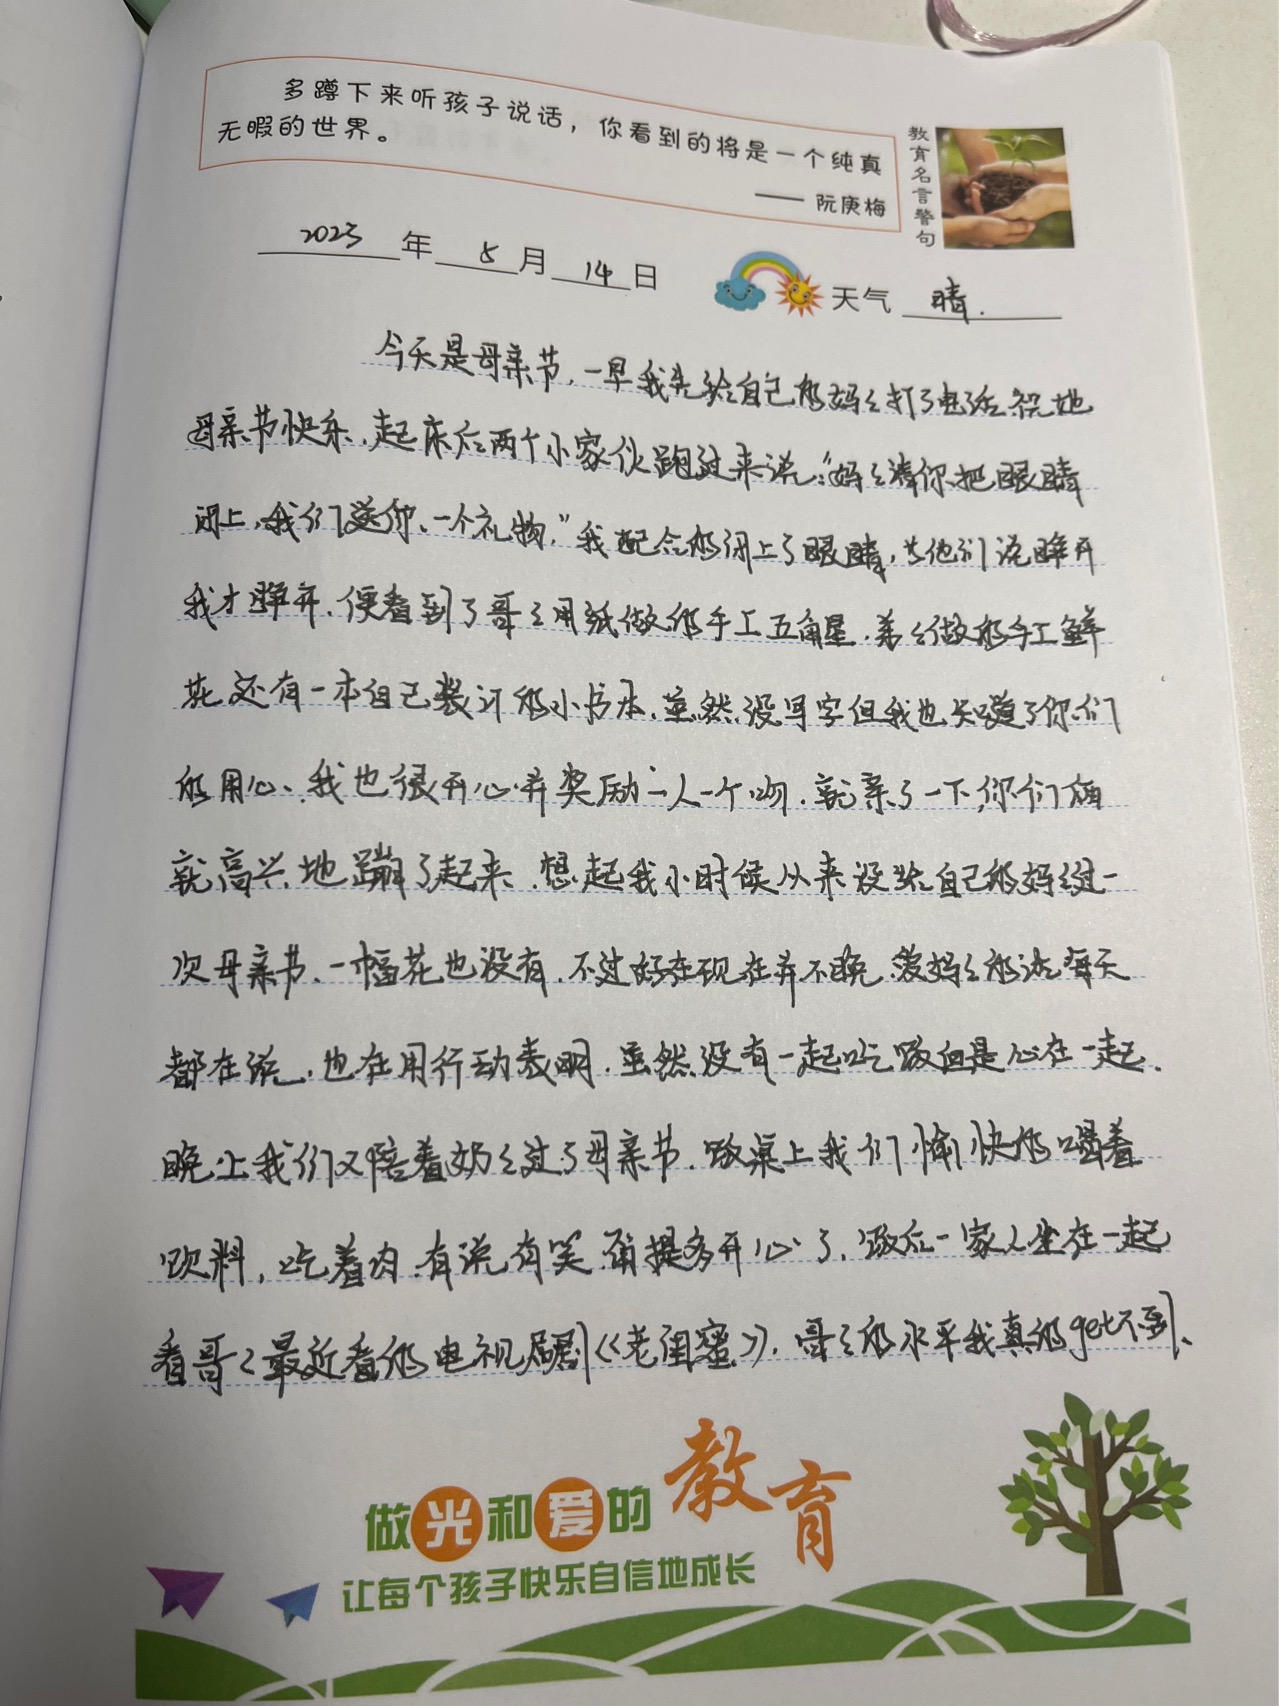 多蹲下来听孩子说话，你看到的将是一个纯真
无暇的世界。
—— 阮庚梅
教育名言警句
2023年5月14日
天气 晴.
今天是母亲节，一早我先给自己的妈妈打了电话祝她
母亲节快乐，起床后两个小家伙跑过来说:“妈妈请你把眼睛
闭上，我们送你一个礼物，”我配合的闭上了眼睛，等他们说睁开
我才睁开，便看到了哥哥用纸做的手工五角星，弟弟做的手工鲜
花，还有一本自己装订的小书本，虽然没写字但我也知道了你们
的用心、我也很开心并奖励一人一个吻，就亲了一下，你们俩
就高兴地蹦了起来，想起我小时候从来没给自己的妈妈过一
次母亲节，一幅花也没有，不过好在现在并不晚，爱妈妈的话每天
都在说，也在用行动表明，虽然没有一起吃饭但是心在一起.
晚上我们又陪着奶奶过了母亲节，饭桌上我们愉快的喝着
饮料，吃着肉，有说有笑，甭提多开心了，饭后一家人坐在一起
看哥哥最近看的电视剧《老闺蜜》，哥哥的水平我真的get不到、
做光和爱的教育
让每个孩子快乐自信地成长